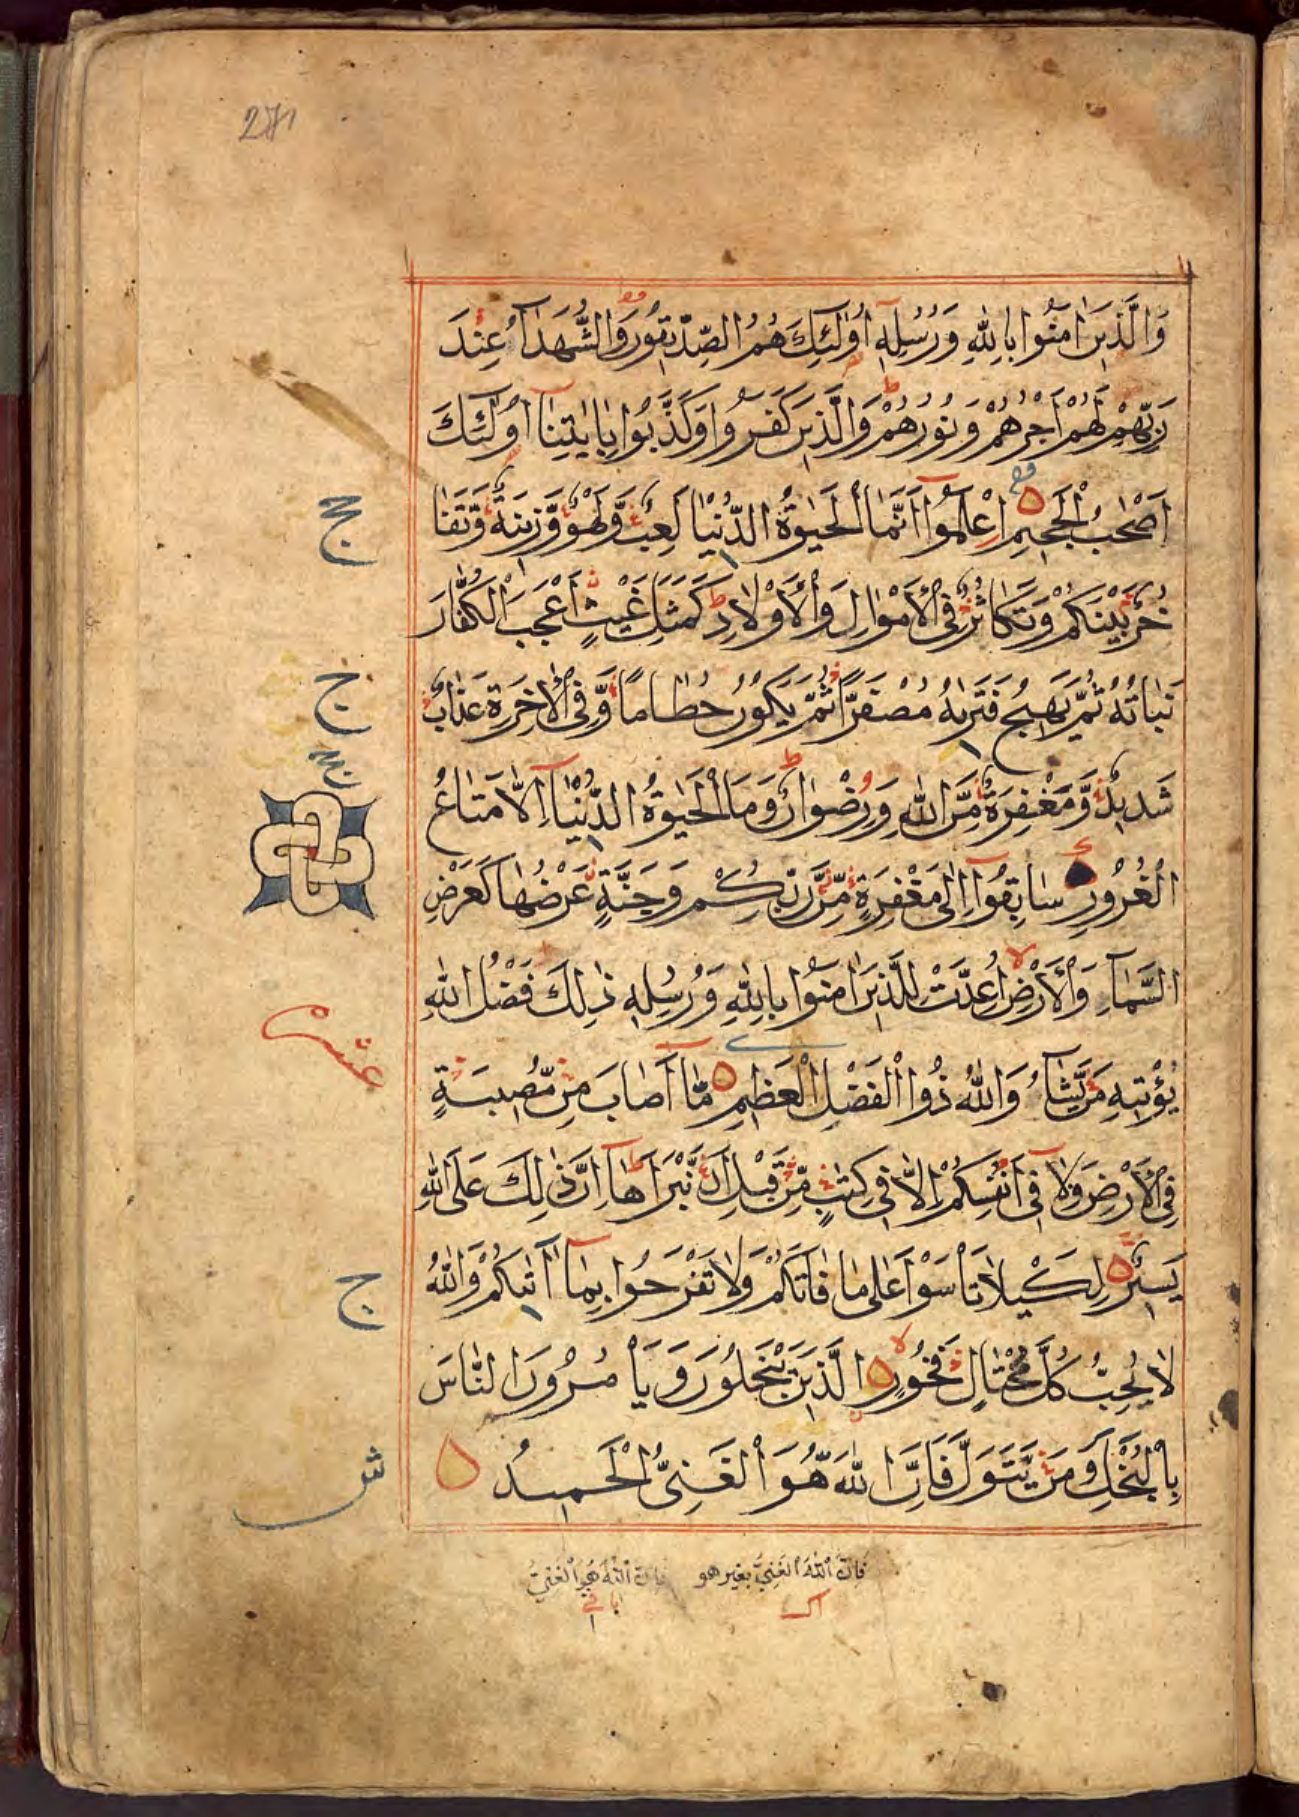 271
وَالَّذِينَ اٰمَنُوا بِاللّٰهِ وَرُسُلِهِ اُولٰئِكَ هُمُ الصِّدِّيقُونَ وَالشُّهَدَاۤءُ عِنْدَ
رَبِّهِمْ لَهُمْ اَجْرُهُمْ وَنُورُهُمْ وَالَّذِينَ كَفَرُوا وَكَذَّبُوا بِاٰيٰتِنَا اُولٰئِكَ
اَصْحٰبُ الْجَحِيمِ اِعْلَمُوا اَنَّمَا الْحَيٰوةُ الدُّنْيَا لَعِبٌ وَّلَهْوٌ وَّزِينَةٌ وَّتَفَا
خُرٌ بَيْنَكُمْ وَتَكَاثُرٌ فِي الْاَمْوَالِ وَالْاَوْلَادِ كَمَثَلِ غَيْثٍ اَعْجَبَ الْكُفَّارَ
نَبَاتُهُ ثُمَّ يَهِيجُ فَتَرٰيهُ مُصْفَرًّا ثُمَّ يَكُونُ حُطَامًا وَّفِي الْاٰخِرَةِ عَذَابٌ
شَدِيدٌ وَّمَغْفِرَةٌ مِّنَ اللّٰهِ وَرِضْوَانٌ وَمَا الْحَيٰوةُ الدُّنْيَا اِلَّا مَتَاعُ
الْغُرُورِ سَابِقُوا اِلٰى مَغْفِرَةٍ مِّنْ رَّبِّكُمْ وَجَنَّةٍ عَرْضُهَا كَعَرْضِ
السَّمَاۤءِ وَالْاَرْضِ اُعِدَّتْ لِلَّذِينَ اٰمَنُوا بِاللّٰهِ وَرُسُلِهِ ذٰلِكَ فَضْلُ اللّٰهِ
يُؤْتِيهِ مَنْ يَّشَاۤءُ وَاللّٰهُ ذُوا الْفَضْلِ الْعَظِيمِ مَّا اَصَابَ مِنْ مُّصِيبَةٍ
فِي الْاَرْضِ وَلَا فِي اَنْفُسِكُمْ اِلَّا فِي كِتٰبٍ مِّنْ قَبْلِ اَنْ نَّبْرَاَهَا اِنَّ ذٰلِكَ عَلَى اللّٰهِ
يَسِيرٌ لِكَيْلَا تَأْسَوْا عَلٰى مَا فَاتَكُمْ وَلَا تَفْرَحُوا بِمَا اٰتٰيكُمْ وَاللّٰهُ
لَا يُحِبُّ كُلَّ مُخْتَالٍ فَخُورٍ الَّذِينَ يَبْخَلُونَ وَيَأْمُرُونَ النَّاسَ
بِالْبُخْلِ وَمَنْ يَّتَوَلَّ فَاِنَّ اللّٰهَ هُوَ الْغَنِيُّ الْحَمِيدُ
ج
ج
عشر
ج
ش
فَاِنَّ اللّٰهَ الْغَنِيُّ بغير هو
فَاِنَّ اللّٰهَ هُوَ الْغَنِيُّ
باقي